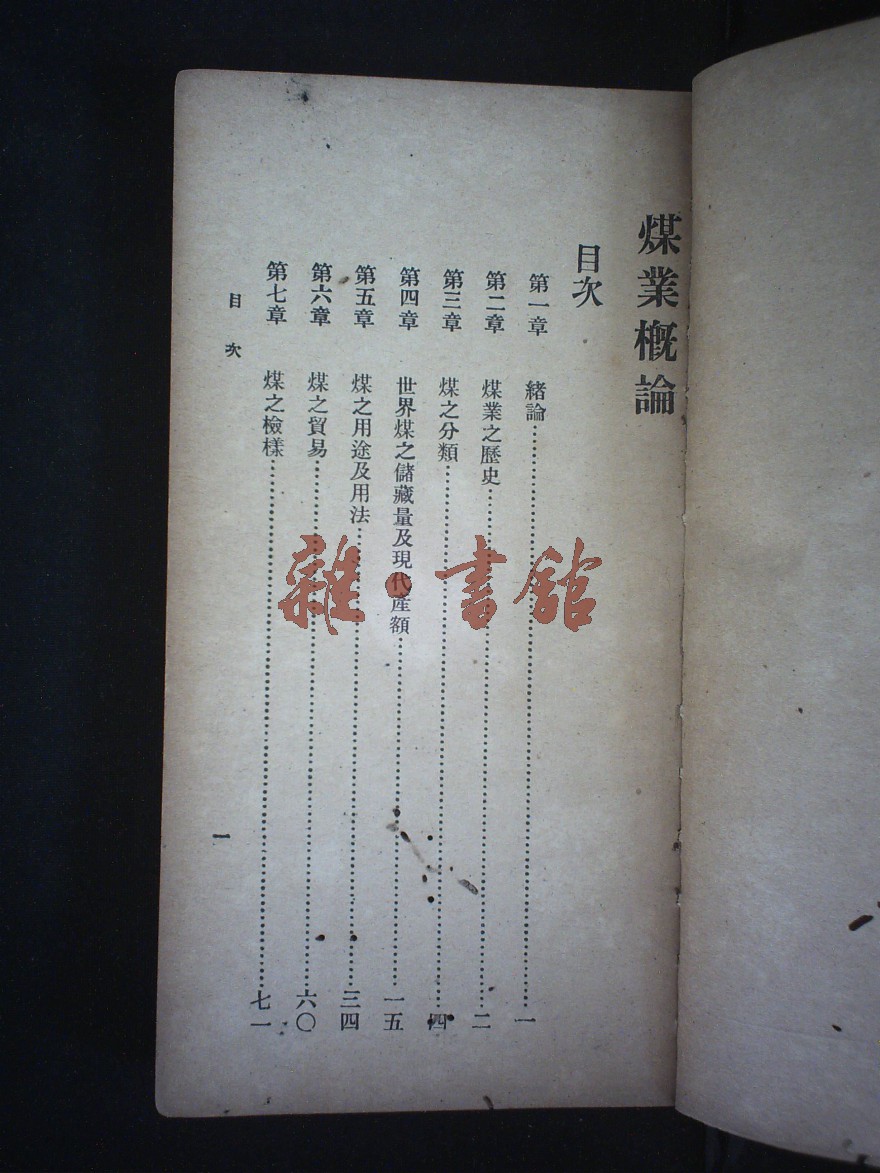 煤業概論
目次
第一章 緒論……一
第二章 煤業之歷史……二
第三章 煤之分類……四
第四章 世界煤之儲藏量及現代產額……一五
第五章 煤之用途及用法……三四
第六章 煤之貿易……六〇
第七章 煤之檢樣……七一
目次
一
雜·書館